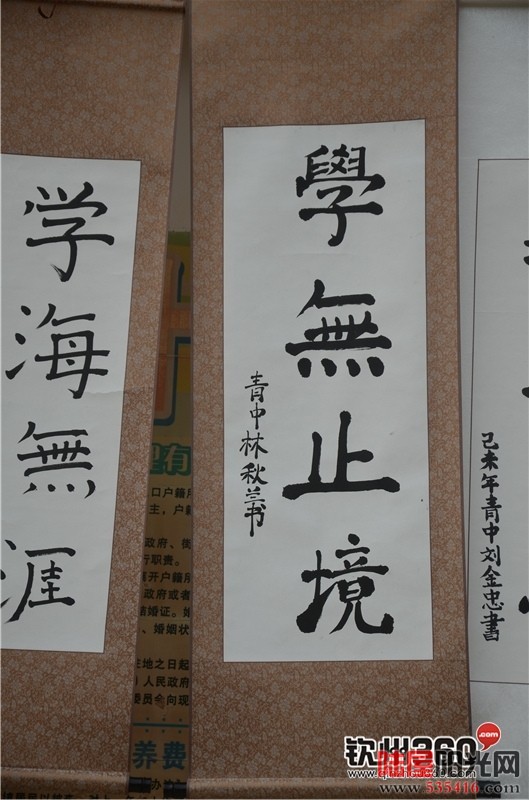 学海無涯
學無止境
青中林秋兰书
己未年青中刘金忠書
口户籍
主，户籍
政府、街
行职责。
政府或者
结婚证。
、婚姻状
人民政府
委员会向现
养费
钦州360
.com
阳光网
www.535416.com